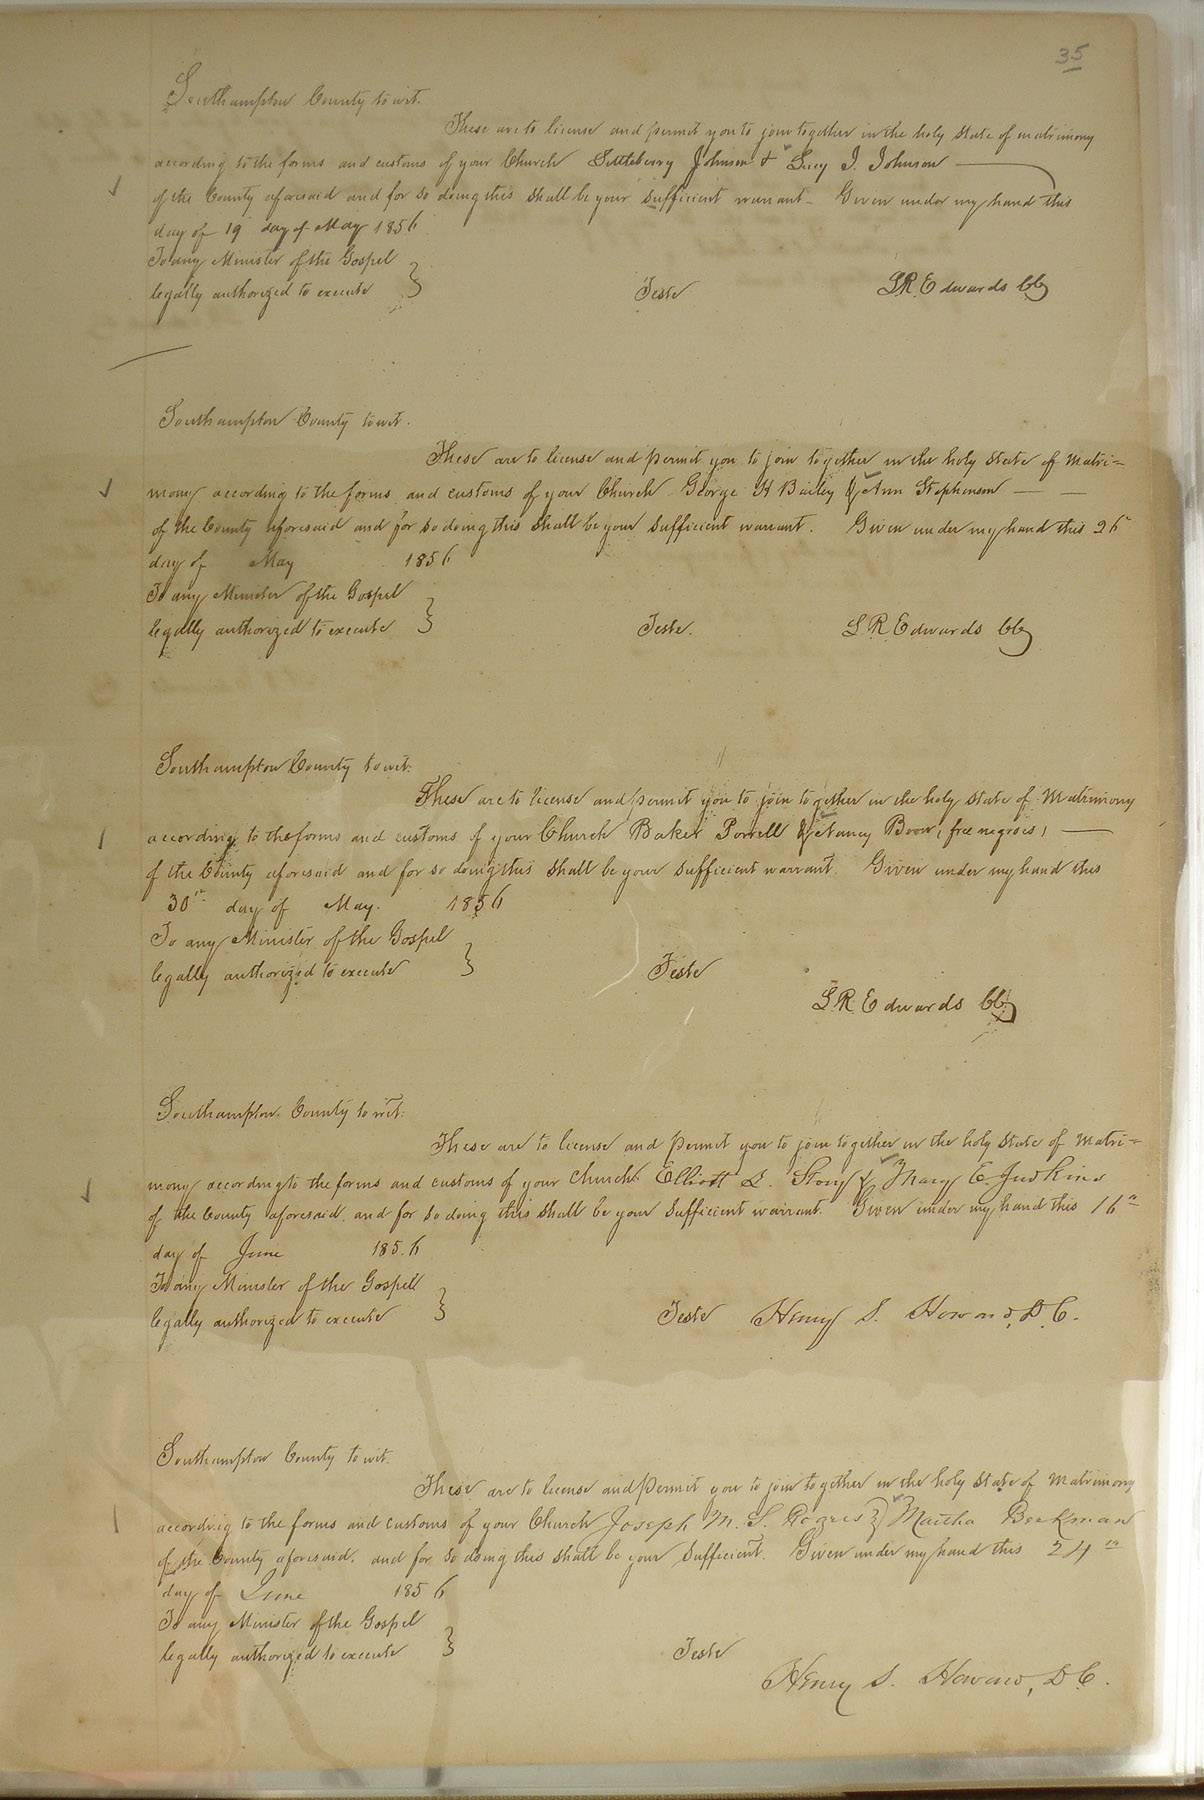 35
Southampton County to wit.
These are to license and permit you to join together in the holy state of matrimony
according to the forms and customs of your Church Littleberry Johnson & Lucy J. Johnson
of the County aforesaid and for so doing this shall be your sufficient warrant - Given under my hand this
day of 19 day of May 1856
To any Minister of the Gospel
legally authorized to execute }
Teste L R Edwards CC
Southampton County to wit.
These are to license and permit you to join together in the holy state of Matri=
mony according to the forms and customs of your Church George H Bailey & Ann Stephenson
of the County aforesaid and for so doing this shall be your sufficient warrant. Given under my hand this 26
day of May 1856
To any Minister of the Gospel
legally authorized to execute }
Teste. L R Edwards CC
Southampton County to wit.
These are to license and permit you to join together in the holy state of Matrimony
according to the forms and customs of your Church Baker Powell & Nancy Boon (free negroes)
of the County aforesaid and for so doing this shall be your sufficient warrant. Given under my hand this
30th day of May. 1856
To any Minister of the Gospel
legally authorized to execute }
Teste
L R Edwards CC
Southampton County to wit.
These are to license and permit you to join together in the holy state of Matri=
mony according to the forms and customs of your Church Elliott L. Story & Mary E. Judkins
of the County aforesaid. and for so doing this shall be your sufficient warrant. Given under my hand this 16th
day of June 1856
To any Minister of the Gospel
legally authorized to execute }
Teste Henry S. Howard, D.C.
Southampton County to wit.
These are to license and permit you to join together in the holy state of Matrimony
according to the forms and customs of your Church Joseph M. S. Rogers & Martha Beekman
of the County aforesaid. and for so doing this shall be your sufficient. Given under my hand this 24th
day of June 1856
To any Minister of the Gospel
legally authorized to execute }
Teste
Henry S. Howard, D.C.